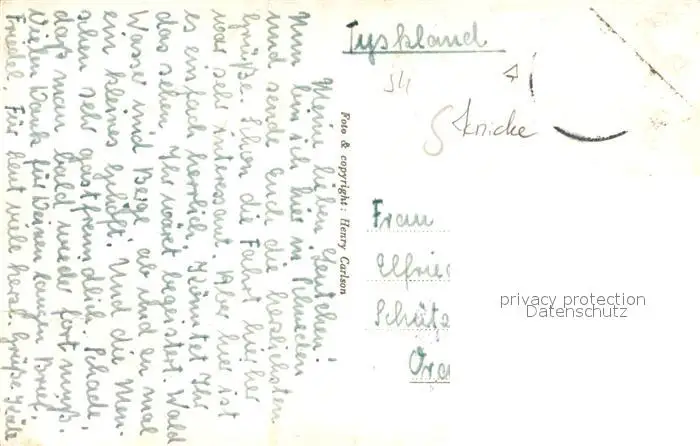 Meine lieben Leutchen!
Nun bin ich hier in Schweden
und sende Euch die herzlichsten
Grüße. Schon die Fahrt hierher
war sehr interessant. Aber hier ist
es einfach herrlich. Könntet Ihr
das sehen Ihr wäret begeistert. Wald
Wasser und Berge, ab und an mal
ein kleines Gehöft. Und die Men-
schen sehr gastfreundlich. Schade,
daß man bald wieder fort muß.
Vielen Dank für Deinen langen Brief,
Friedel. Für heut viele herzl. Grüße Käte
Foto & copyright: Henry Carlson
Tyskland
Knicke
Frau
Elfried
Schütz
Ora
privacy protection
Datenschutz